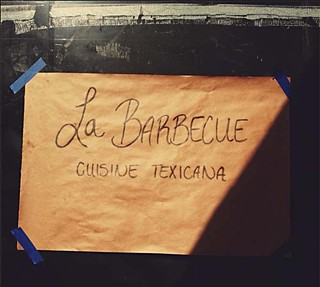 La BARBECUE
CUISINE TEXICANA